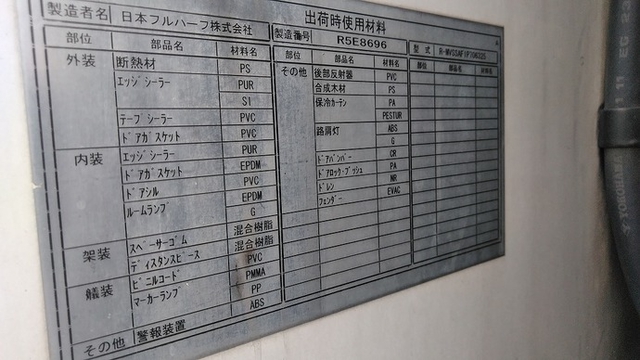 出荷時使用材料
製造者名 日本フルハーフ株式会社 製造番号 R5E8696 型式
部位 部品名 材料名
外装 断熱材 PS
エッジシーラー PUR
SI
テープシーラー PVC
ドアガスケット PVC
内装 エッジシーラー PUR
ドアガスケット EPDM
ドアシル PVC
ルームランプ EPDM
G
混合樹脂
架装 スペーサーゴム 混合樹脂
ディスタンスピース PVC
艤装 ビニルコード PMMA
マーカーランプ PP
ABS
その他 警報装置
部位 部品名 材料名
その他 後部反射器 PVC
合成木材 PS
保冷カーテン PA
PESTUR
路肩灯 ABS
G
ドアバンパー CR
ドアロック・ブッシュ PA
ドレン NR
フェンダー EVAC
部位 部品名 材料名
YOKOHAMA